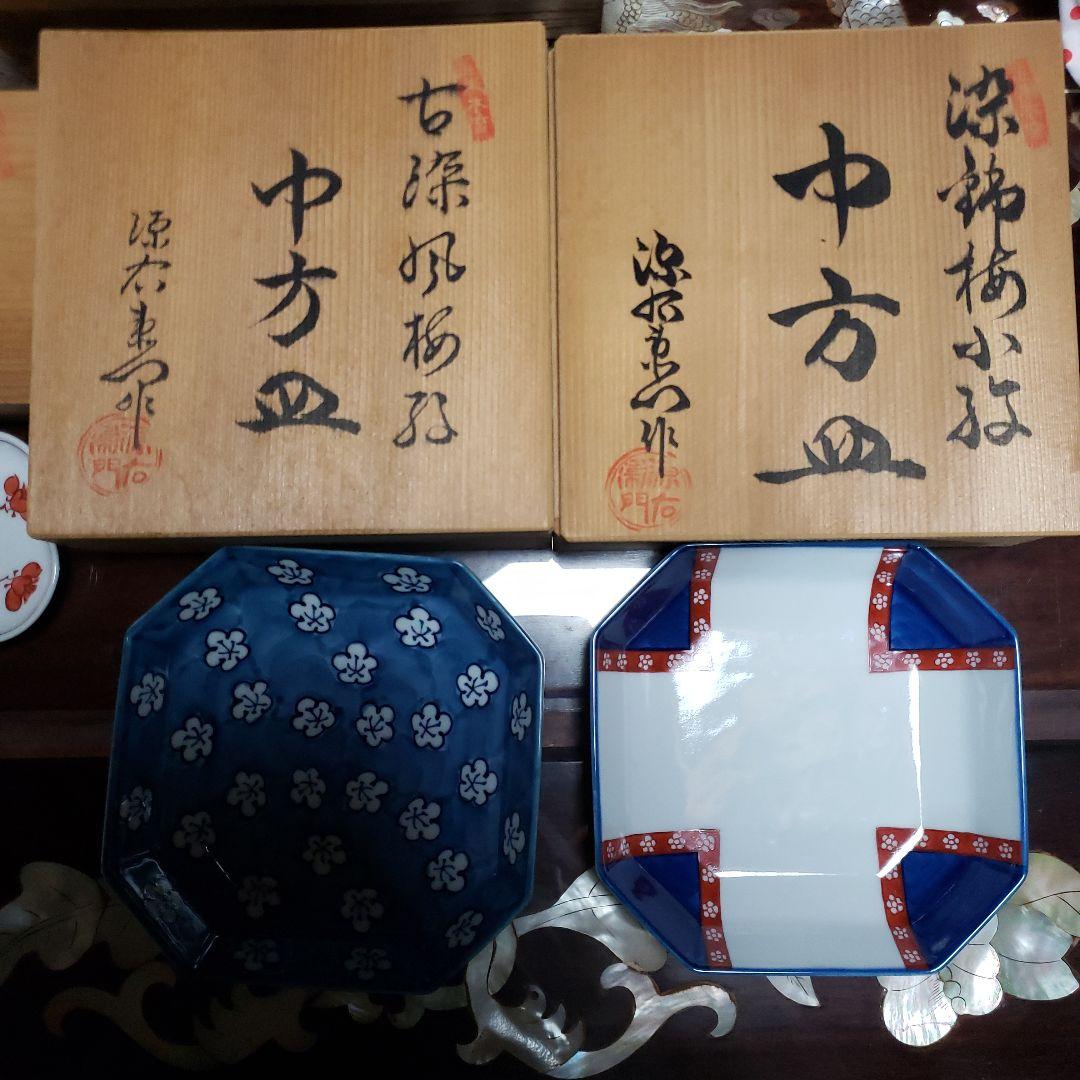 古染風梅紋
中方皿
源右衛門作
源右衛門
染錦梅小紋
中方皿
源右衛門作
源右衛門